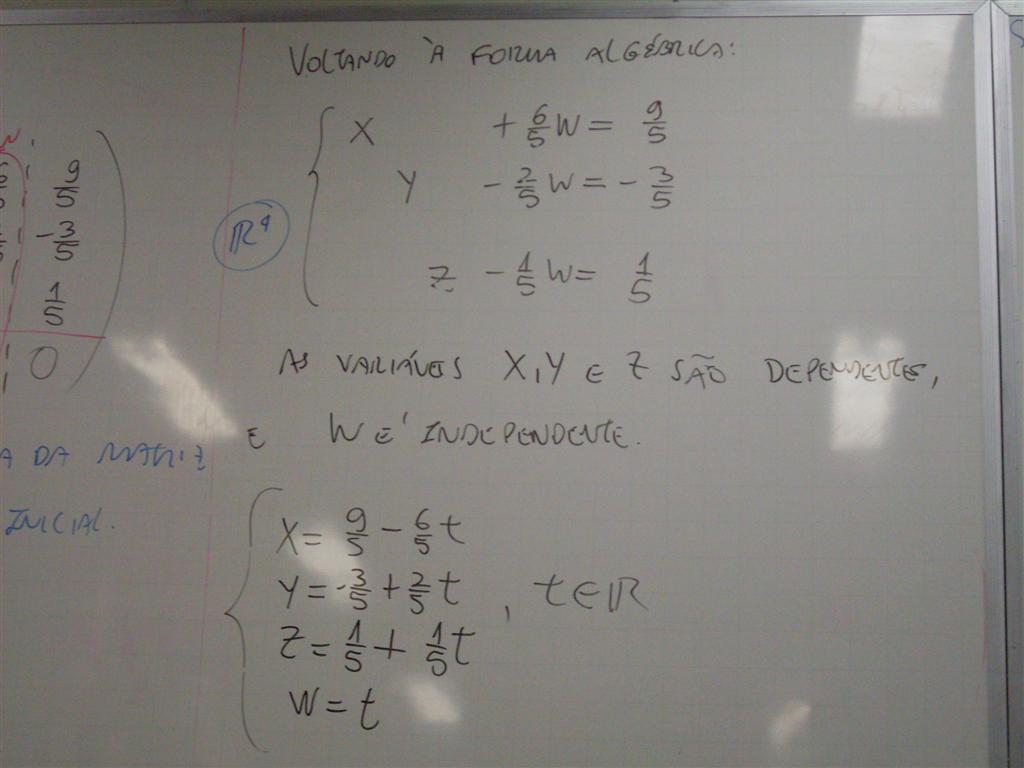 VOLTANDO À FORMA ALGÉBRICA:
X + 6/5 W = 9/5
Y - 2/5 W = - 3/5
Z - 1/5 W = 1/5
ℝ⁴
9/5
-3/5
1/5
0
AS VARIÁVEIS X, Y E Z SÃO DEPENDENTES,
E W É INDEPENDENTE.
A DA MATRIZ
INICIAL.
X = 9/5 - 6/5 t
Y = -3/5 + 2/5 t , t ∈ ℝ
Z = 1/5 + 1/5 t
W = t